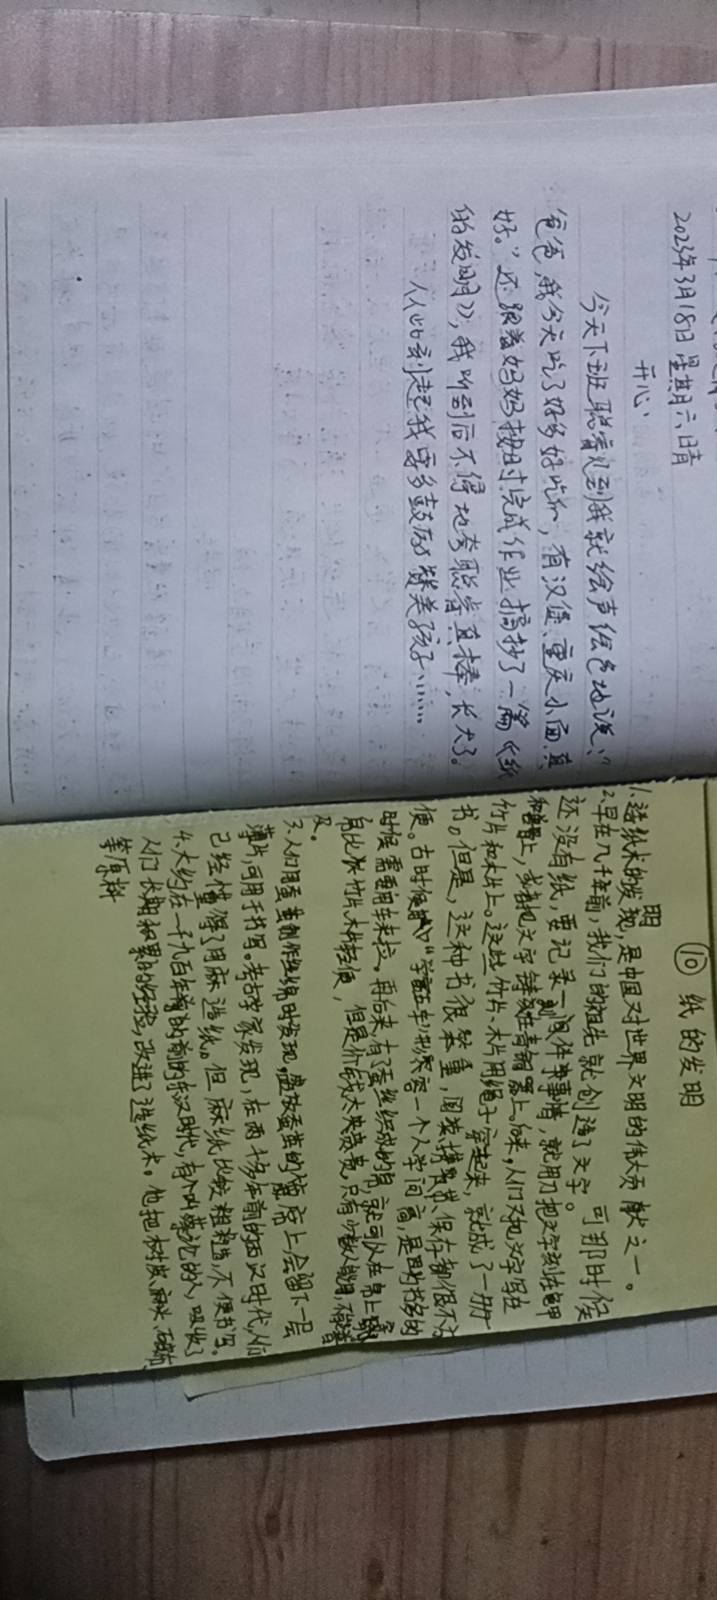 2023年3月18日 星期六 晴
开心
今天下班聪睿见到我就绘声绘色地说："
爸爸,我今天吃了好多好吃的,有汉堡、重庆小面,真
好。"还跟着妈妈按时完成作业,摘抄了一篇《纸
的发明》,我听到后不停地夸聪睿真棒,长大了。
从此刻起我要多鼓励赞美孩子……
⑩ 纸的发明
1.造纸术的发明,是中国对世界文明的伟大贡献之一。
2.早在几千年前,我们的祖先就创造了文字。可那时候
还没有纸,要记录一件事情,就用刀把文字刻在龟甲
和兽骨上,或者把文字铸刻在青铜器上。后来,人们又把文字写在
竹片和木片上。这些竹片、木片用绳子穿起来,就成了一册
书。但是,这种书很笨重,阅读、携带、保存都很不方
便。古时候用"学富五车"形容一个人学问高,是因为书多的
时候需要用车来拉。再后来,有了蚕丝织成的帛,就可以在帛上写
帛比竹片、木片轻便,但是价钱太昂贵,只有少数人能用,不能普
及。
3.人们用蚕茧制作丝绵时发现,盛放蚕茧的篾席上,会留下一层
薄片,可用于书写。考古学家发现,在两千多年前的西汉时代,人们
已经懂得了用麻造纸。但麻纸比较粗糙,不便书写。
4.大约在一千九百年前的东汉时代,有个叫蔡伦的人,吸收了
人们长期积累的经验,改进了造纸术。他把树皮、麻头、破布
等原料